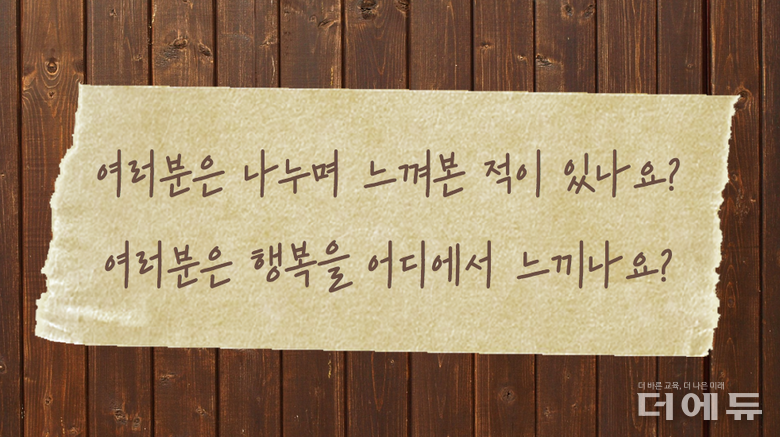 여러분은 나누며 느껴본 적이 있나요?
여러분은 행복을 어디에서 느끼나요?
더 바른 교육, 더 나은 미래
더에듀